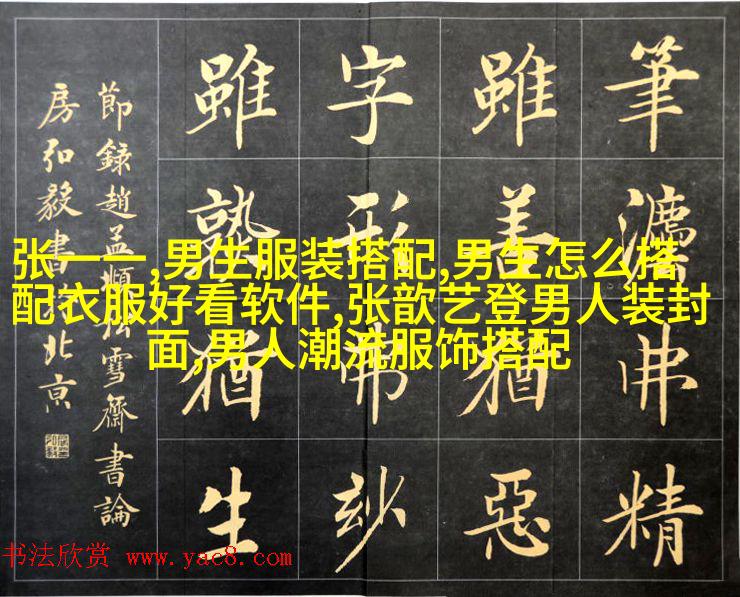 筆灋弗精
雖善猶惡
字形弗玅
雖熟猶生
節錄趙孟頫松雪齋書論
房弘毅書於北京
张一一,男生服装搭配,男生怎么搭
配衣服好看软件,张歆艺登男人装封
面,男人潮流服饰搭配
书法欣赏 www.yac8.com